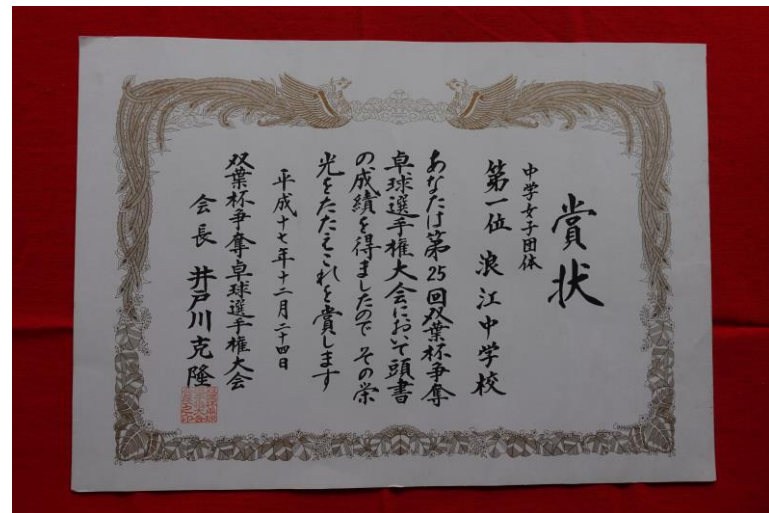 賞状
中学女子団体
第一位 浪江中学校
あなたは第25回双葉杯争奪
卓球選手権大会において頭書
の成績を得ましたので その栄
光をたたえこれを賞します
平成十七年十二月二十四日
双葉杯争奪卓球選手権大会
会長 井戸川克隆